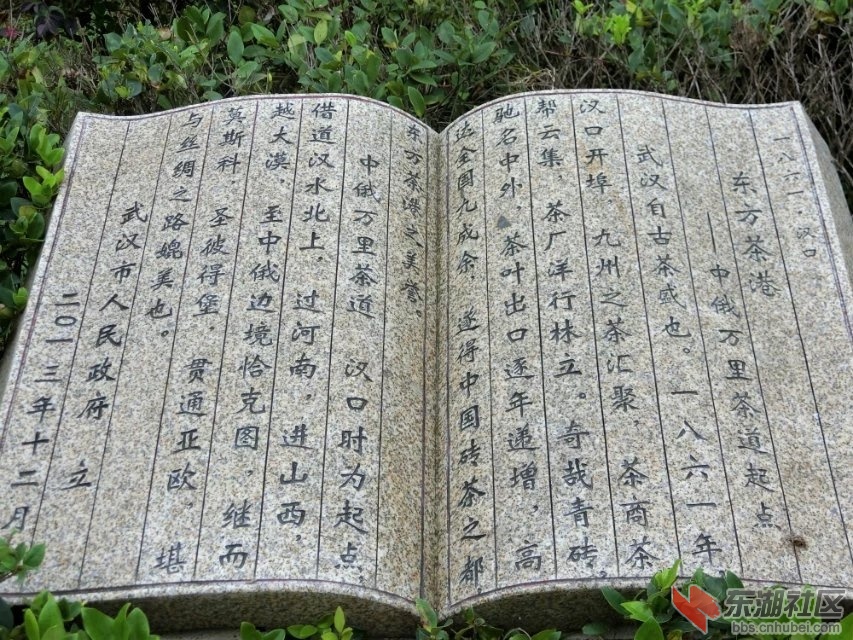 一八六一·汉口
东方茶港
——中俄万里茶道起点
武汉自古茶盛也。一八六一年,
汉口开埠,九州之茶汇聚,茶商茶
帮云集,茶厂洋行林立。奇哉青砖,
驰名中外,茶叶出口逐年递增,高
达全国九成余,遂得中国砖茶之都
东方茶港之美誉。
中俄万里茶道 汉口时为起点,
借道汉水北上,过河南,进山西,
越大漠,至中俄边境恰克图,继而
莫斯科,圣彼得堡,贯通亚欧,堪
与丝绸之路媲美也。
武汉市人民政府 立
二〇一三年十二月
东湖社区
bbs.cnhubei.com